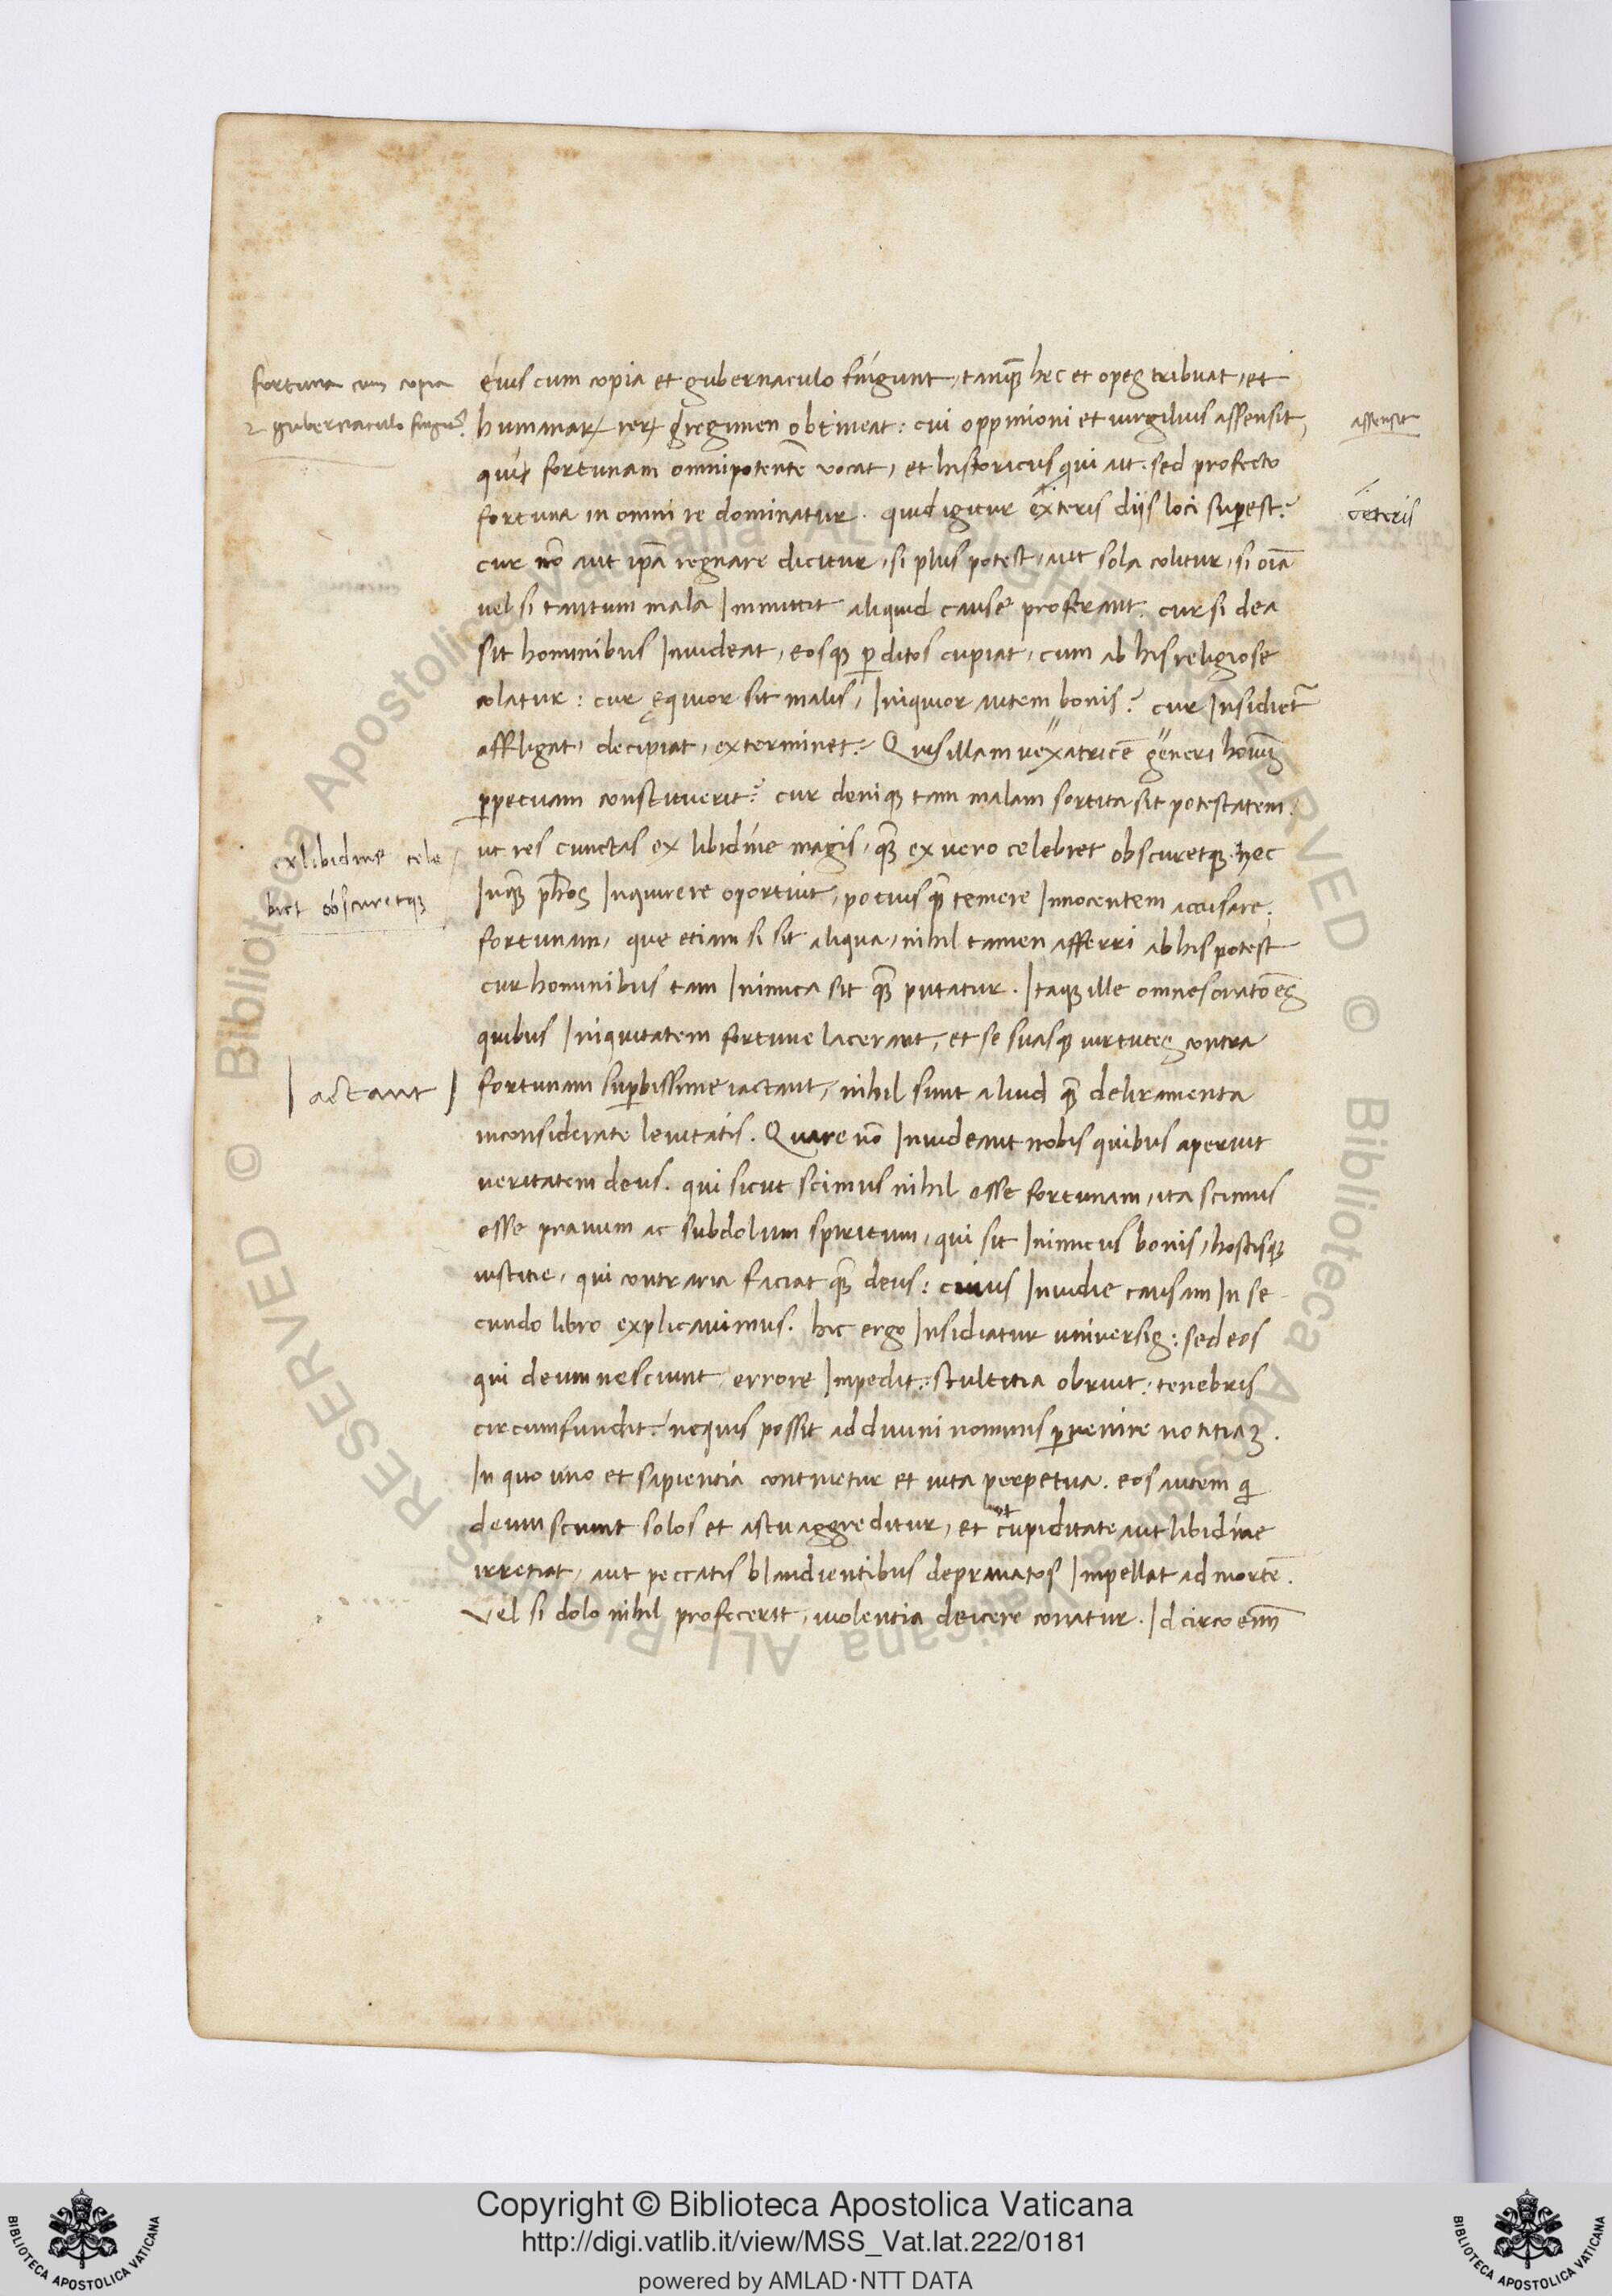 fortuna cum copia
⁊ gubernaculo fingūt
eius cum copia et gubernaculo fingunt, tanq̃ hec et opes tribuat, et
humanaꝝ reꝝ regimen obtineat: cui oppinioni et uirgilius assensit,
assensit
qui fortunam omnipotentē uocat, et historicus qui ait. sed profecto
fortuna in omni re dominatur. quid igitur exteris diis loci suꝑest?
ceteris
cur nō aut ip̄a regnare dicitur, si plus potest, aut sola colitur, si oīa
uel si tantum mala Immittit aliquid cause proferant. cur si dea
sit hominibus Inuideat, eosqꝫ ꝑditos cupiat, cum ab his religiose
colatur: cur ęquior sit malis, Iniquior autem bonis? cur Insidiet̃
affligat, decipiat, exterminet? Quis illam uexatricē generi homīū
ꝑpetuam constituerit? cur deniqꝫ tam malam sortita sit potestatem.
ex libidine cele
bret obscuretqꝫ
ut res cunctas ex libidine magis, q̃ ex uero celebret obscuretqꝫ. hec
Inq̃ ph̃os Inquirere oportuit, potius q̃ temere Innocentem accusare
fortunam, que etiam si sit aliqua, nihil tamen afferri ab his potest
cur hominibus tam Inimica sit q̃ putatur. Itaqꝫ ille omnes oratōes
quibus Iniquitatem fortune lacerant, et se suasqꝫ uirtutes contra
Iactant
fortunam suꝑbissime iactant, nihil sunt aliud q̃ deliramenta
inconsiderate leuitatis. Quare nō Inuideant nobis quibus aperuit
ueritatem deus. qui sicut scimus nihil esse fortunam, ita scimus
esse prauum ac subdolum spiritum, qui sit Inimicus bonis, hostisqꝫ
iustitie, qui contraria faciat q̃ deus: cuius Inuidie causam In se
cundo libro explicauimus. hic ergo Insidiatur uniuersis: sed eos
qui deum nesciunt errore Impedit: stultitia obruit: tenebris
circumfundit: nequis possit ad diuini nominis ꝑuenire notitiaꝫ.
In quo uno et sapientia continetur et uita perpetua. eos autem qͥ
deum sciunt solos et astu aggreditur, et ut cupiditate aut libidine
irretiat, aut peccatis blandientibus deprauatos Impellat ad mortē.
Vel si dolo nihil profecerit, uiolentia deicere conatur. Idcirco enī
© Biblioteca Apostolica Vaticana ALL RIGHTS RESERVED © Biblioteca Apostolica Vaticana ALL RIGHTS RESERVED
Copyright © Biblioteca Apostolica Vaticana
http://digi.vatlib.it/view/MSS_Vat.lat.222/0181
powered by AMLAD·NTT DATA
BIBLIOTECA APOSTOLICA VATICANA
BIBLIOTECA APOSTOLICA VATICANA